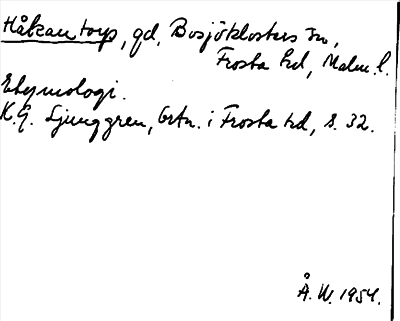 Håkantorp, gd, Bosjöklosters sn,
Frosta hd, Malm. l.
Etymologi.
K.G. Ljunggren, Ortn. i Frosta hd, s. 32.
Å. W. 1954.